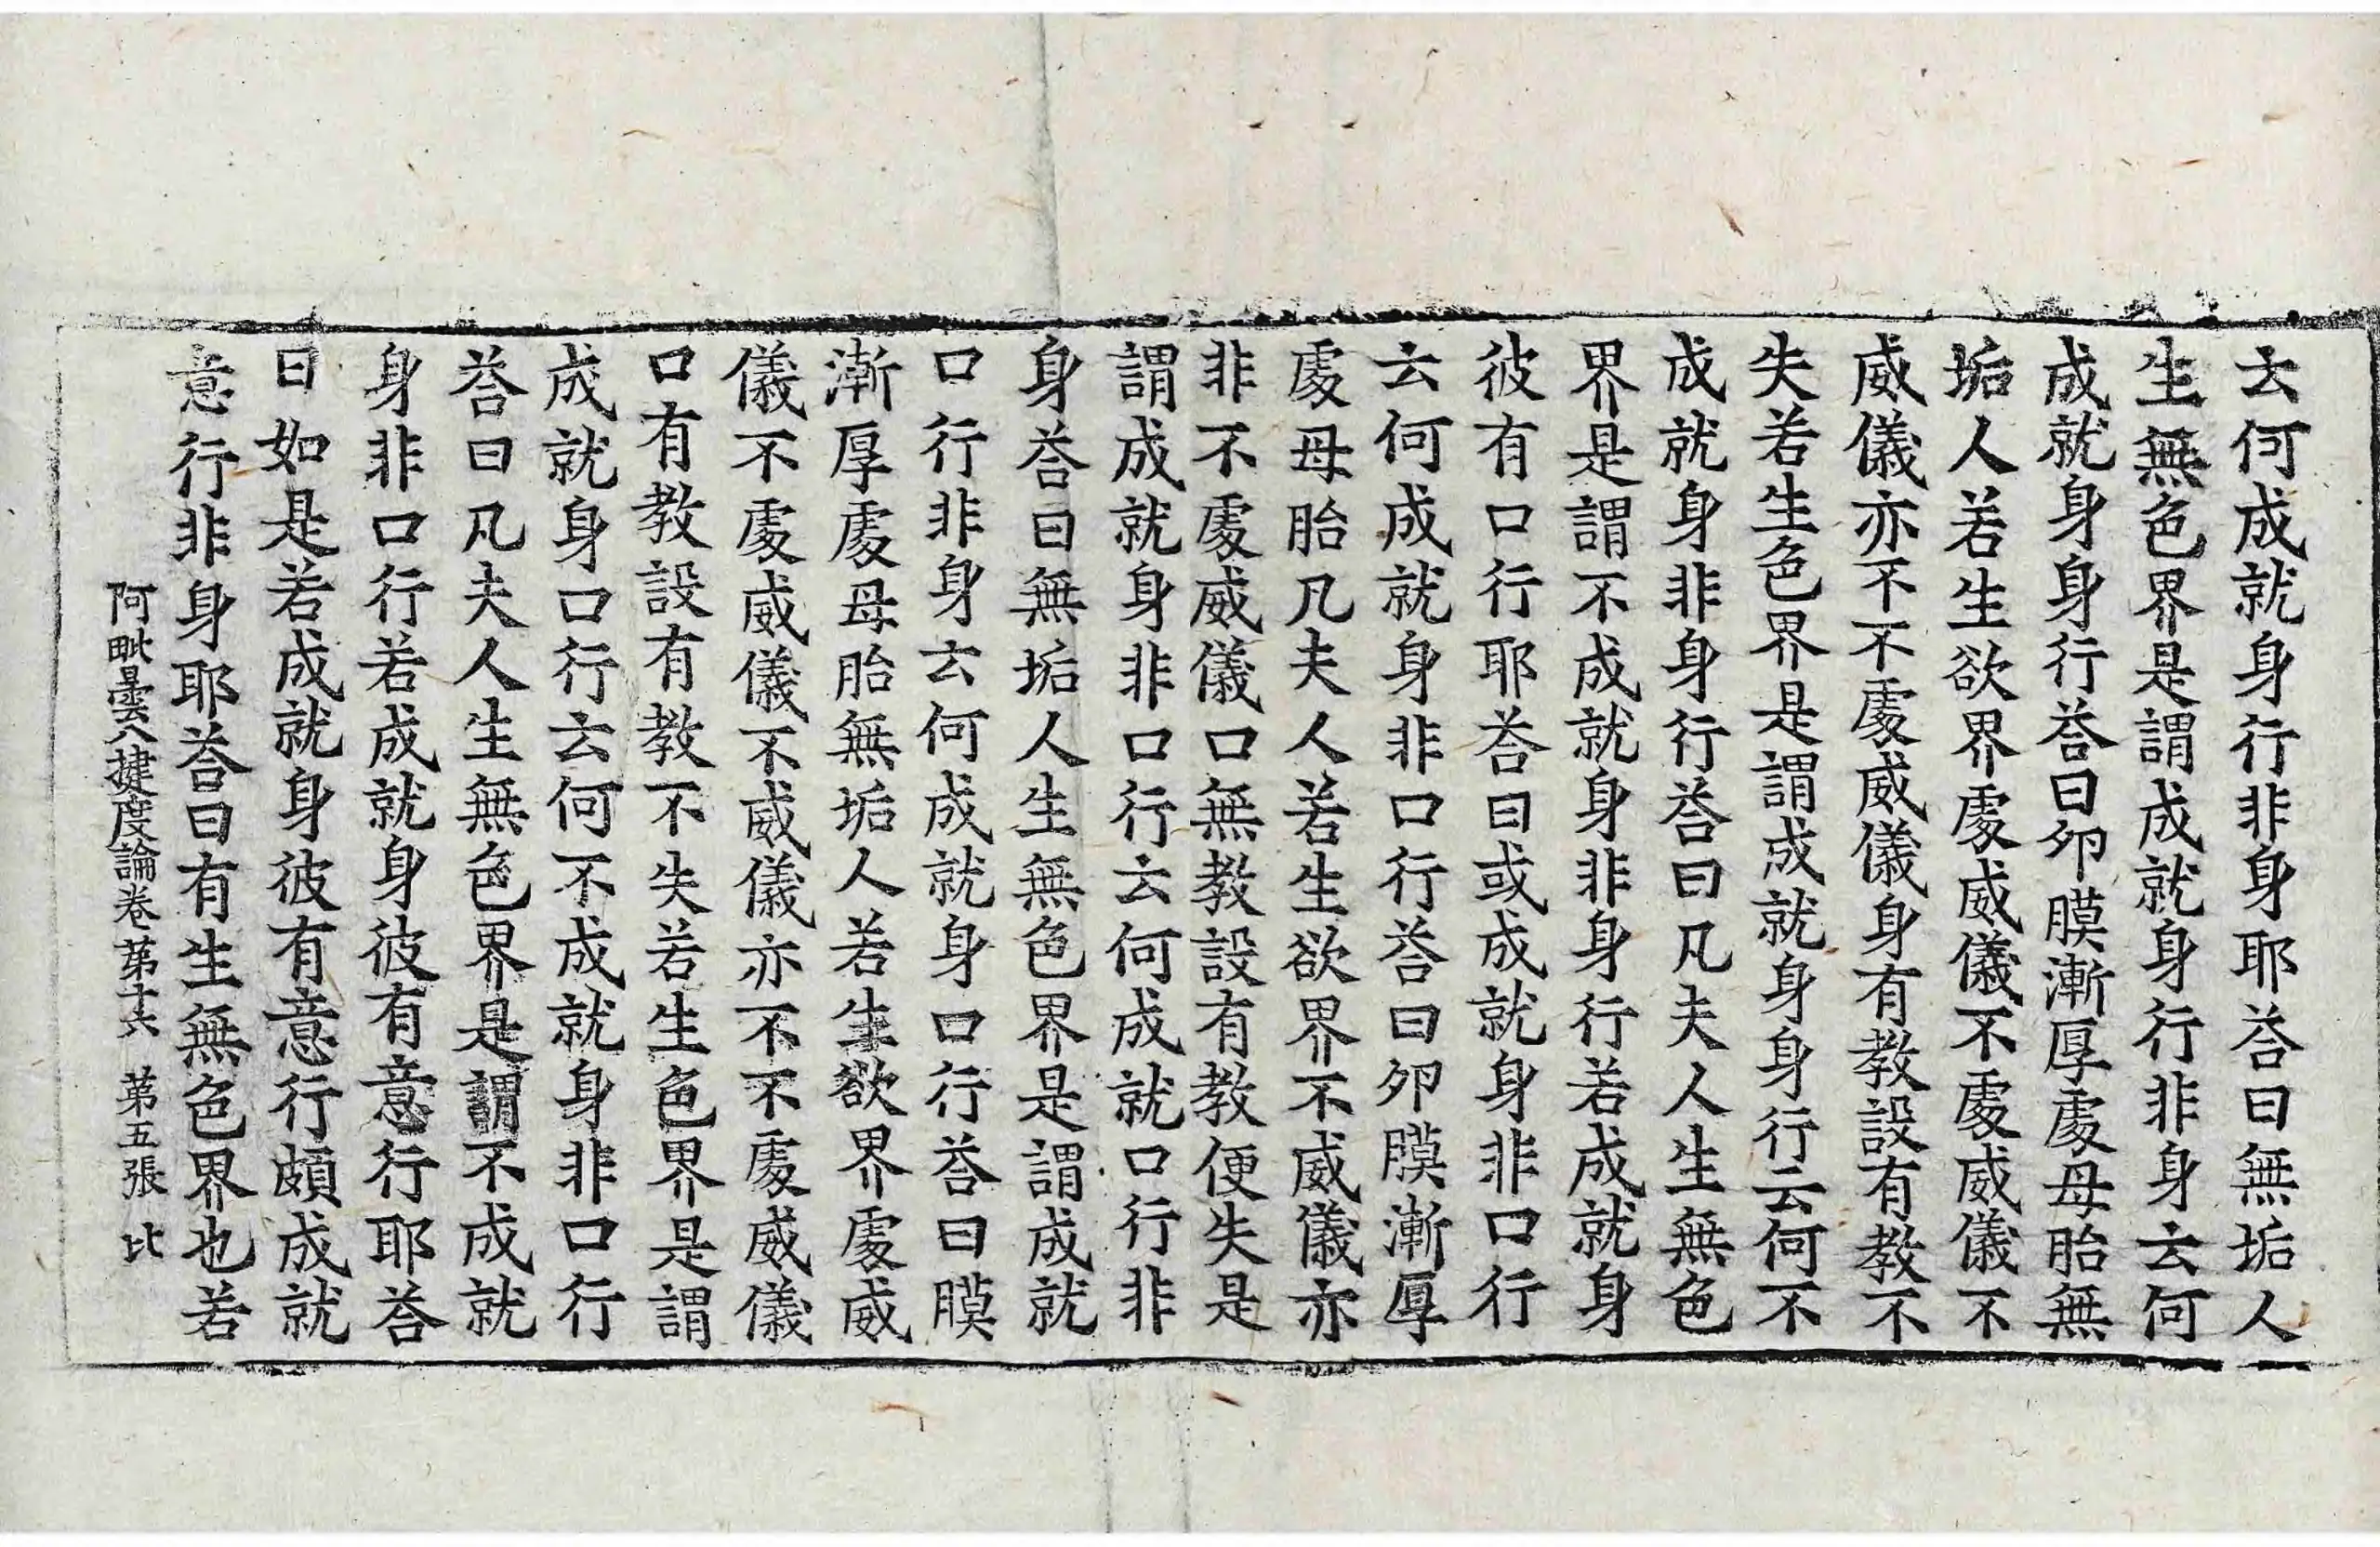 云何成就身行非身耶荅曰無垢人
生無色界是謂成就身行非身云何
成就身身行荅曰夘膜漸厚處母胎無
垢人若生欲界處威儀不處威儀不
威儀亦不不處威儀身有教設有教不
失若生色界是謂成就身身行云何不
成就身非身行荅曰凡夫人生無色
界是謂不成就身非身行若成就身
彼有口行耶荅曰或成就身非口行
云何成就身非口行荅曰夘膜漸厚
處母胎凡夫人若生欲界不威儀亦
非不處威儀口無教設有教便失是
謂成就身非口行云何成就口行非
身荅曰無垢人生無色界是謂成就
口行非身云何成就身口行荅曰膜
漸厚處母胎無垢人若生欲界處威
儀不處威儀不威儀亦不不處威儀
口有教設有教不失若生色界是謂
成就身口行云何不成就身非口行
荅曰凡夫人生無色界是謂不成就
身非口行若成就身彼有意行耶荅
曰如是若成就身彼有意行頗成就
意行非身耶荅曰有生無色界也若
阿毗曇八揵度論卷第十六 第五張 比